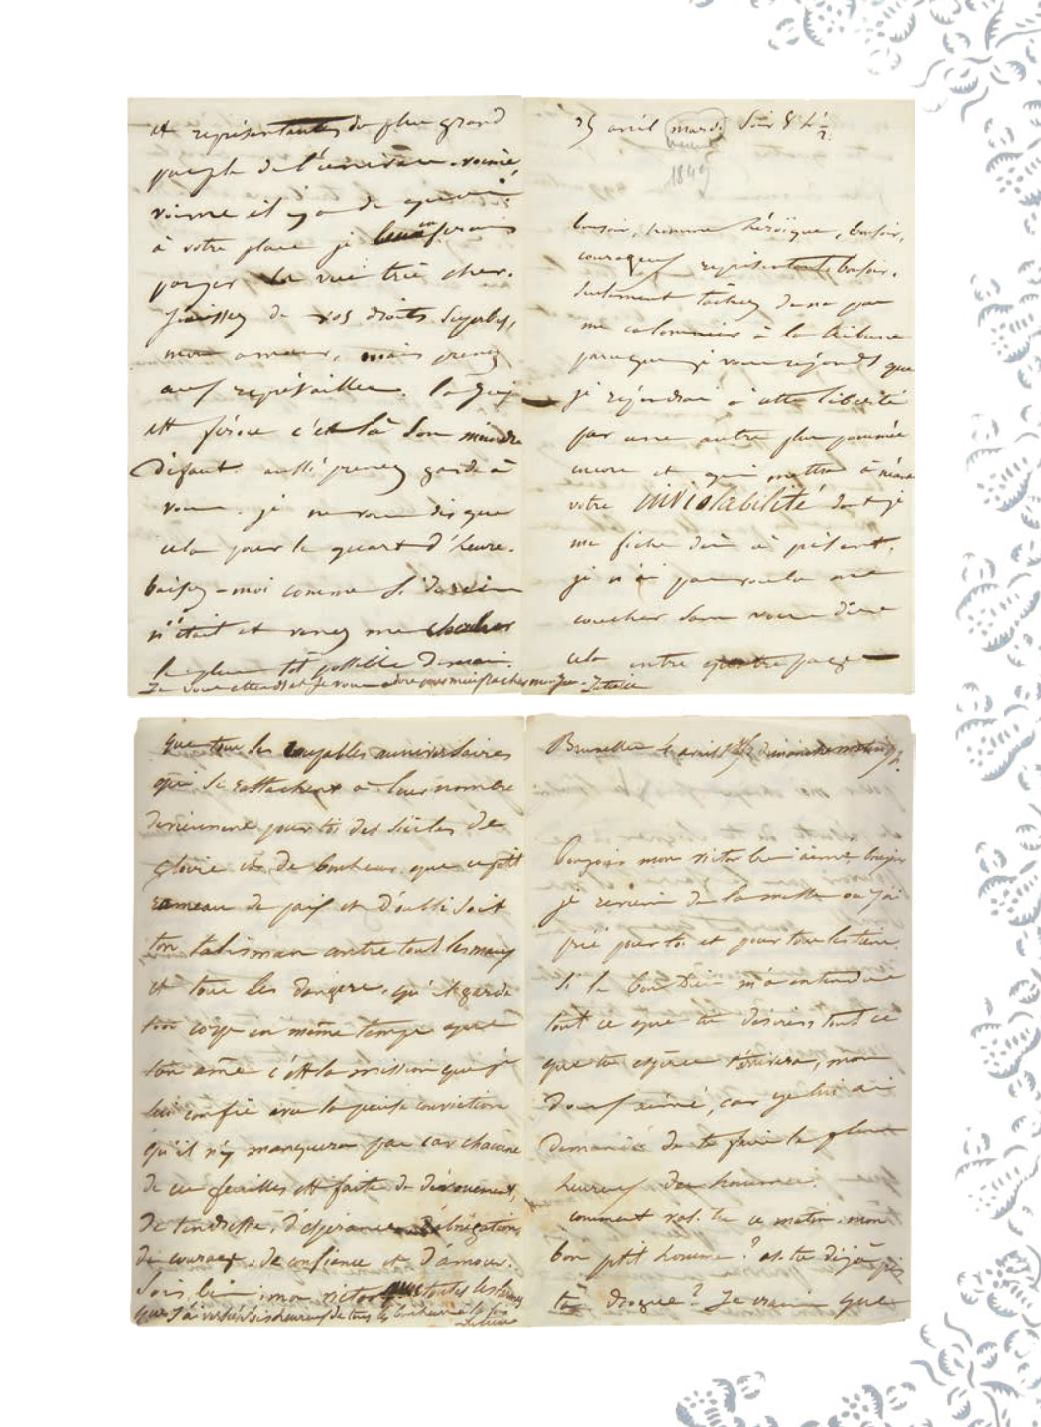 et représentantes du plus grand
peuple de l'univers. voime,
voime il y a de quoi
à votre place je ferais
payer la vue très cher.
Jouissez de vos droits superbes,
mon amour, mais prenez
aux représailles. la Juju
est féroce c'est là son moindre
défaut. aussi prenez garde à
vous. je ne vous dis que
cela pour le quart d'heure.
baisez-moi comme si de rien
n'était et venez me chercher
le plus tôt possible demain.
Je vous attends et je vous adore
Juliette
25 avril mardi soir 8 h ½
1849
bonsoir, homme héroïque, bonsoir,
courageux représentant bonsoir.
Seulement tâchez de ne pas
me calomnier à la tribune
parce que je vous réponds que
je répondrai à cette liberté
par une autre plus
encore et qui mettra à néant
votre inviolabilité dont je
me fiche dès à présent.
je n'ai pas voulu me
coucher sans vous dire
cela entre quatre pages
que tous les anniversaires
qui se rattachent à leur nombre
deviennent pour toi des siècles de
gloire et de bonheur que ce petit
rameau de paix et d'oubli soit
ton talisman contre tous les maux
et tous les dangers, qu'il garde
ton corps en même temps que
ton âme c'est la mission que je
lui confie avec la pieuse conviction
qu'il n'y manquera pas car chacune
de ces feuilles est faite de dévouement,
de tendresse, d'espérance d'abnégation,
de courage, de confiance et d'amour.
Sois béni mon victor toutes les larmes
que j'ai versées sois heureux de tous les bonheurs
Juliette
Bruxelles 4 avril dimanche matin
Bonjour mon victor bien aimé, bonjour
je reviens de la messe où j'ai
prié pour toi et pour tous les tiens.
Si le bon Dieu m'a entendue
tout ce que tu désires tout ce
que tu espères t'arrivera, mon
doux aimé, car je lui ai
demandé de te faire le plus
heureux des hommes.
comment vas-tu ce matin mon
bon petit homme? as-tu déjà pris
ta drogue? Je crains que